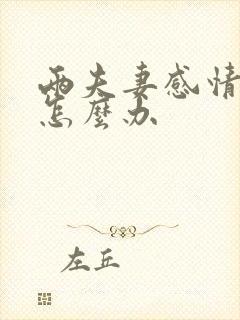 两夫妻感情
怎麽办
左丘